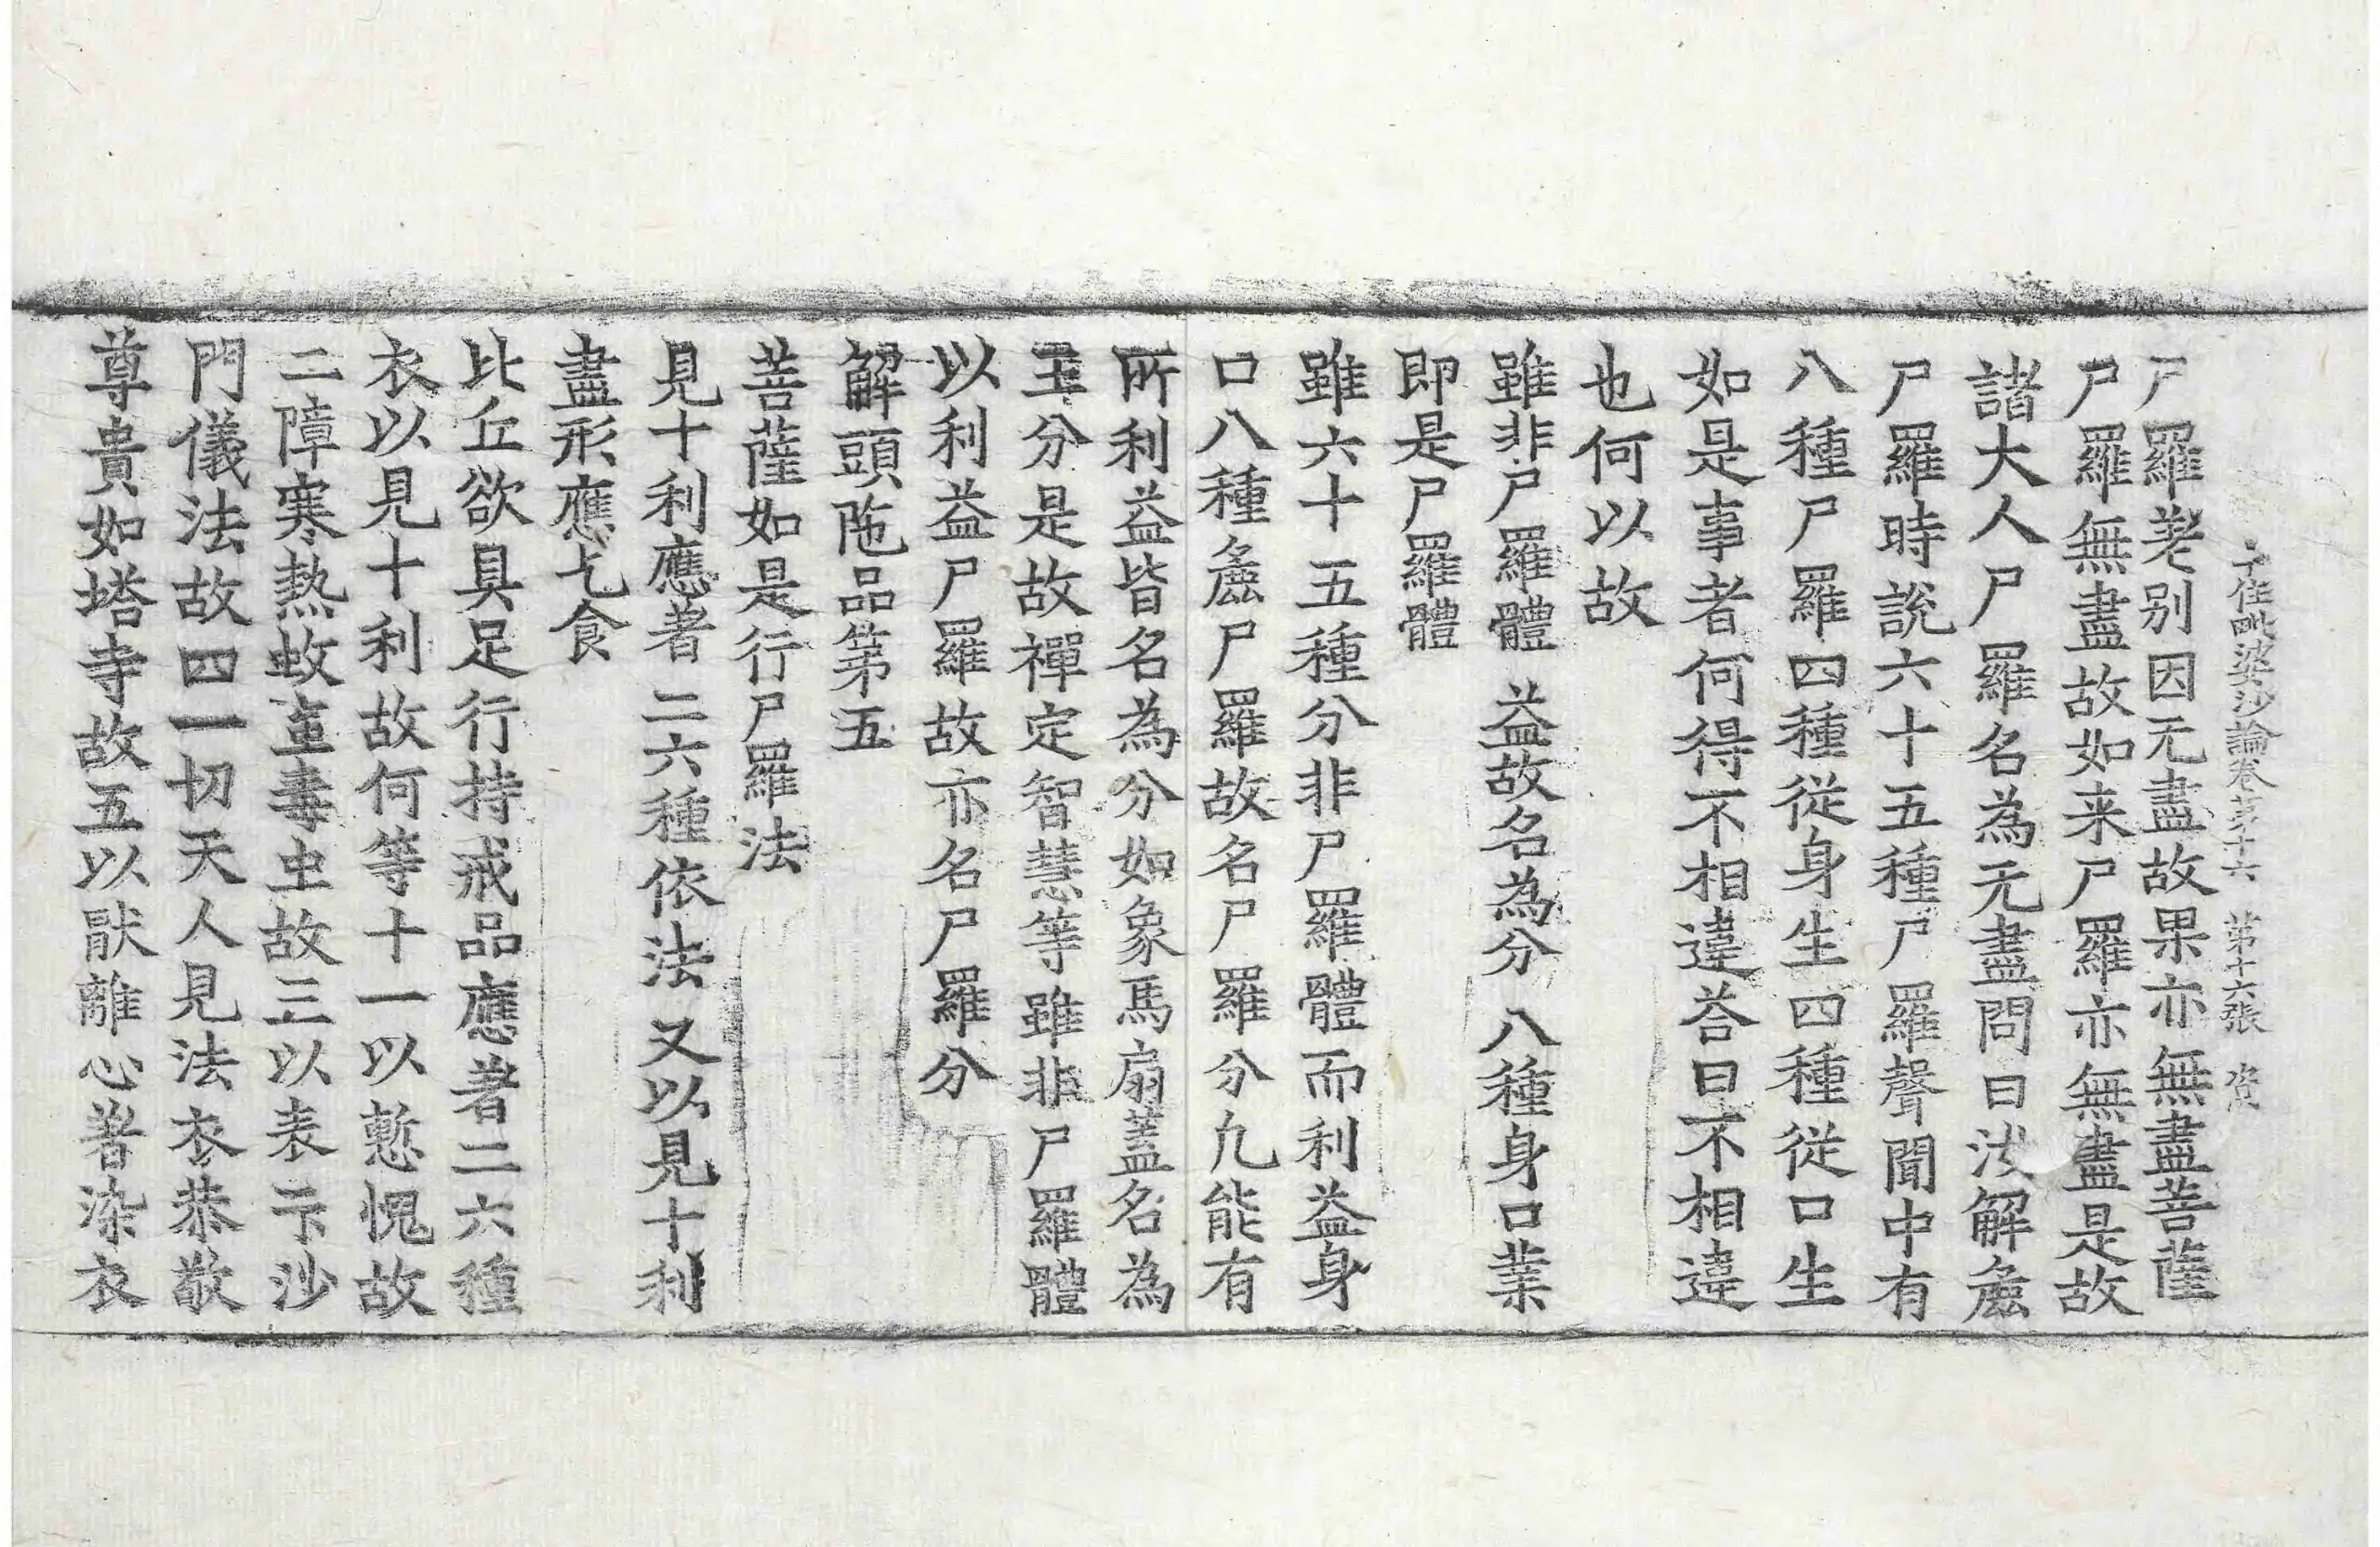 十住毗婆沙論卷第十六 第十六張 資
尸羅差别因无盡故果亦無盡菩薩
尸羅無盡故如来尸羅亦無盡是故
諸大人尸羅名為无盡問曰汝解麁
尸羅時說六十五種尸羅聲聞中有
八種尸羅四種從身生四種從口生
如是事者何得不相違荅曰不相違
也何以故
雖非尸羅體 益故名為分 八種身口業
即是尸羅體
雖六十五種分非尸羅體而利益身
口八種麁尸羅故名尸羅分凢能有
所利益皆名為分如象馬扇蓋名為
王分是故禪定智慧等雖非尸羅體
以利益尸羅故亦名尸羅分
解頭陁品第五
菩薩如是行尸羅法
見十利應著 二六種依法 又以見十利
盡形應乞食
比丘欲具足行持戒品應著二六種
衣以見十利故何等十一以慙愧故
二障寒熱蚊䖟毒虫故三以表示沙
門儀法故四一切天人見法衣恭敬
尊貴如塔寺故五以猒離心著染衣